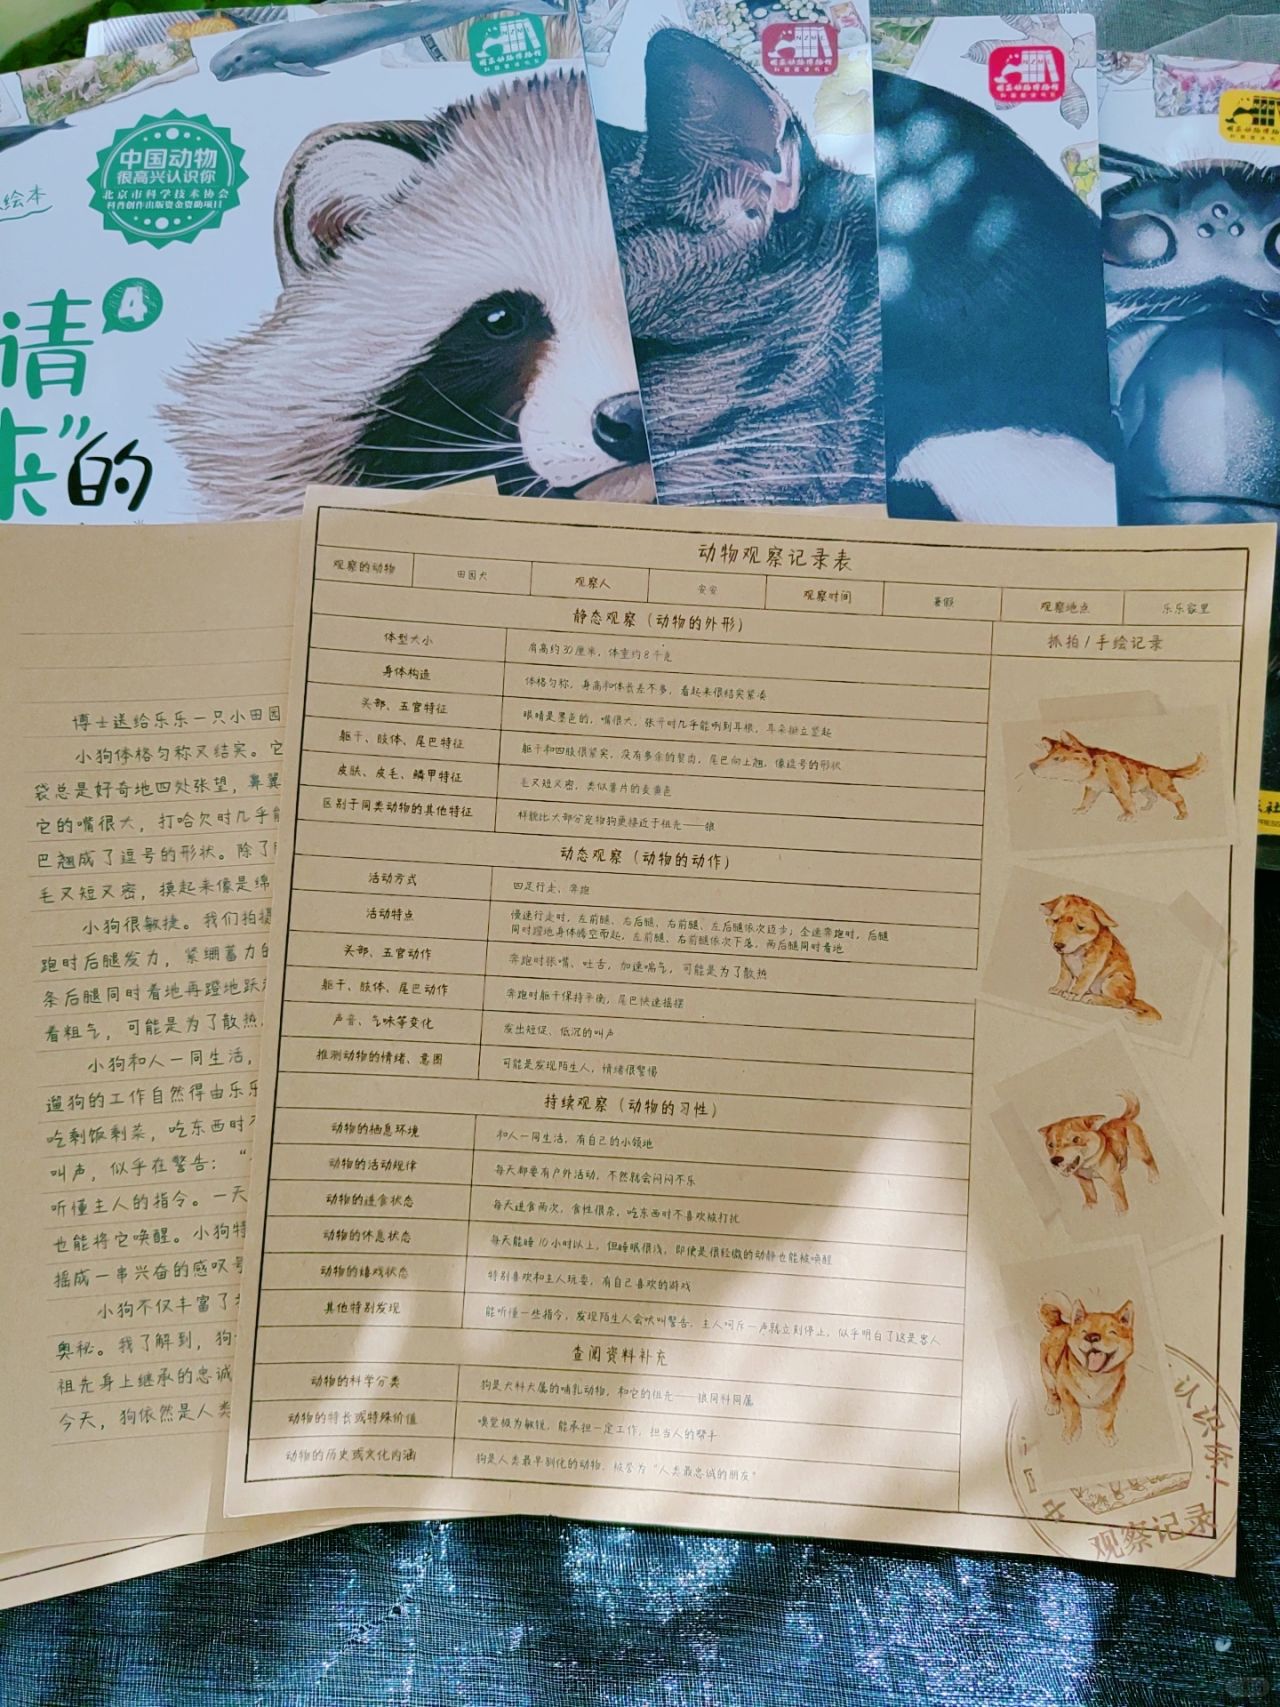 国家动物博物馆
科普童话绘本
国家动物博物馆
国家动物博物馆
中国动物
很高兴认识你
北京市科学技术协会
科普创作出版资金资助项目
绘本
4
请
来”的
动物观察记录表
观察的动物 田园犬 观察人 安安 观察时间 暑假 观察地点 乐乐家里
静态观察（动物的外形）
抓拍/手绘记录
体型大小 肩高约30厘米，体重约8千克
身体构造 体格匀称，身高和体长差不多，看起来很结实紧凑
头部、五官特征 眼睛是墨色的，嘴很大，张开时几乎能咧到耳根，耳朵挺立竖起
躯干、肢体、尾巴特征 躯干和四肢很紧实，没有多余的赘肉，尾巴向上翘，像逗号的形状
皮肤、皮毛、鳞甲特征 毛又短又密，类似薯片的麦黄色
区别于同类动物的其他特征 样貌比大部分宠物狗更接近于祖先——狼
动态观察（动物的动作）
活动方式 四足行走、奔跑
活动特点 慢速行走时，左前腿、右后腿、右前腿、左后腿依次迈步；全速奔跑时，后腿
同时蹬地身体腾空而起，左前腿、右前腿依次下落，两后腿同时着地
头部、五官动作 奔跑时张嘴、吐舌，加速喘气，可能是为了散热
躯干、肢体、尾巴动作 奔跑时躯干保持平衡，尾巴快速摇摆
声音、气味等变化 发出短促、低沉的叫声
推测动物的情绪、意图 可能是发现陌生人，情绪很警惕
持续观察（动物的习性）
动物的栖息环境 和人一同生活，有自己的小领地
动物的活动规律 每天都要有户外活动，不然就会闷闷不乐
动物的进食状态 每天进食两次，食性很杂，吃东西时不喜欢被打扰
动物的休息状态 每天能睡10小时以上，但睡眠很浅，即使是很轻微的动静也能被唤醒
动物的嬉戏状态 特别喜欢和主人玩耍，有自己喜欢的游戏
其他特别发现 能听懂一些指令，发现陌生人会吠叫警告，主人呵斥一声就立刻停止，似乎明白了这是客人
查阅资料补充
动物的科学分类 狗是犬科犬属的哺乳动物，和它的祖先——狼同科同属
动物的特长或特殊价值 嗅觉极为敏锐，能承担一定工作，担当人的帮手
动物的历史或文化内涵 狗是人类最早驯化的动物，被誉为“人类最忠诚的朋友”
认识你！
观察记录
博士送给乐乐一只小田园
小狗体格匀称又结实。它
袋总是好奇地四处张望，鼻翼
它的嘴很大，打哈欠时几乎能
巴翘成了逗号的形状。除了
毛又短又密，摸起来像是绵
小狗很敏捷。我们拍摄
跑时后腿发力，紧绷蓄力的
条后腿同时着地再蹬地跃
着粗气，可能是为了散热
小狗和人一同生活，
遛狗的工作自然得由乐乐
吃剩饭剩菜，吃东西时不
叫声，似乎在警告：“
听懂主人的指令。一天
也能将它唤醒。小狗特
摇成一串兴奋的感叹号
小狗不仅丰富了
奥秘。我了解到，狗
祖先身上继承的忠诚
今天，狗依然是人类